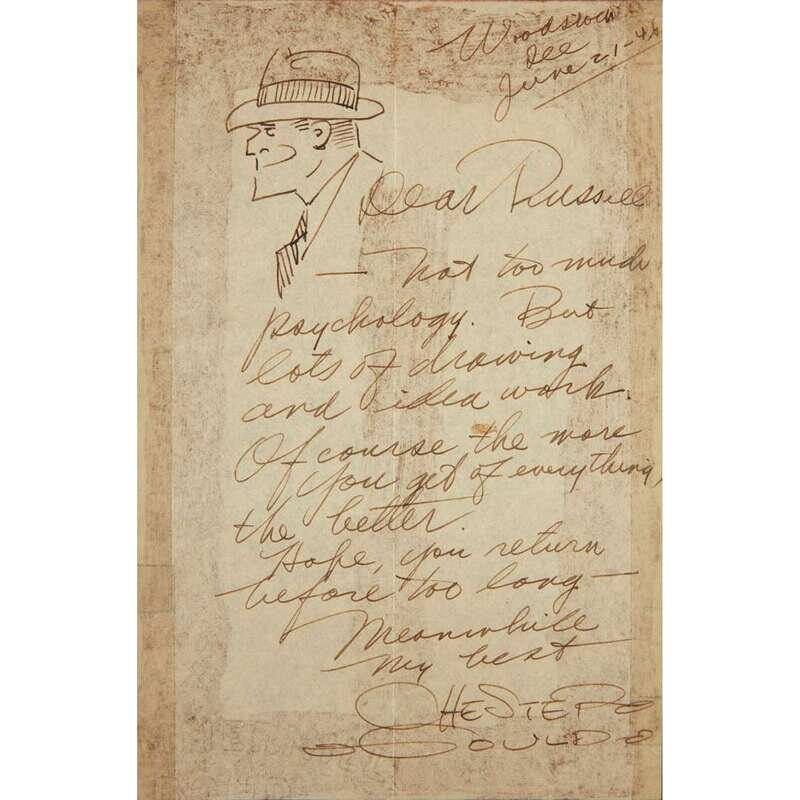 Woodstock
Ill
June 21-46
Dear Russell
— Not too much
psychology. But
lots of drawing
and idea work.
Of course the more
you get of everything,
the better.
Hope, you return
before too long —
Meanwhile
My best
CHESTER
GOULD